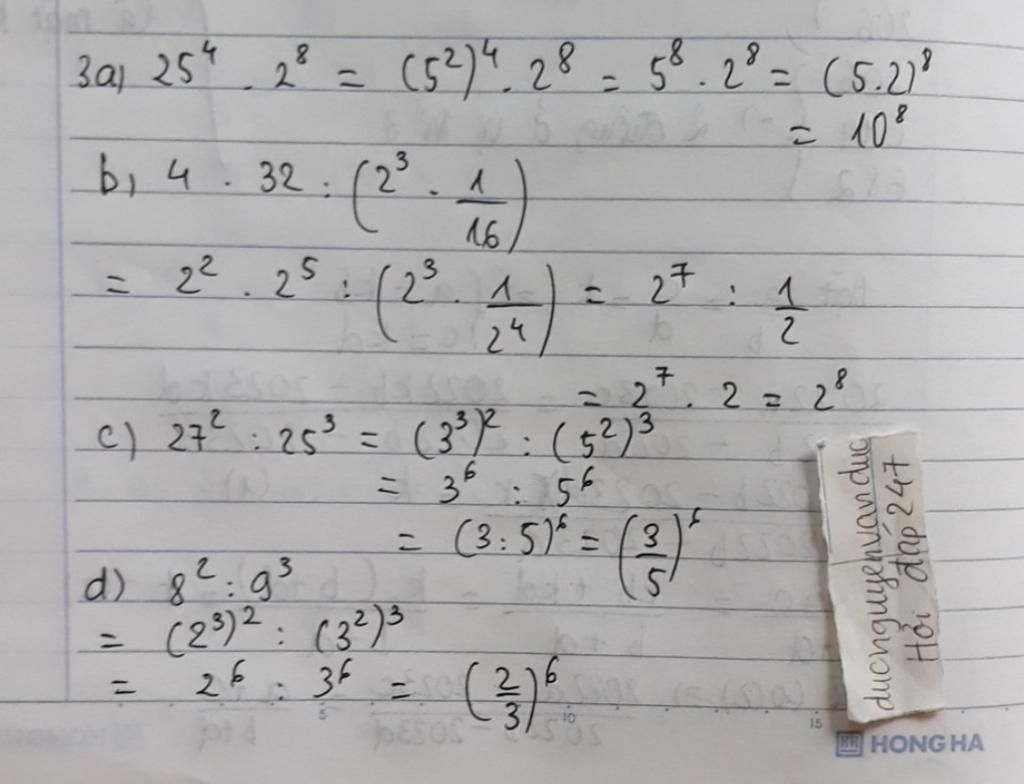 3a) 25⁴ . 2⁸ = (5²)⁴ . 2⁸ = 5⁸ . 2⁸ = (5.2)⁸
= 10⁸
b) 4 . 32 : (2³ . 1/16)
= 2² . 2⁵ : (2³ . 1/2⁴) = 2⁷ : 1/2
= 2⁷ . 2 = 2⁸
c) 27² : 25³ = (3³)² : (5²)³
= 3⁶ : 5⁶
= (3:5)⁶ = (3/5)⁶
d) 8² : 9³
= (2³)² : (3²)³
= 2⁶ : 3⁶ = (2/3)⁶
ducnguyenvanduc
Hỏi đáp 247
5 10 15
HH HONG HA